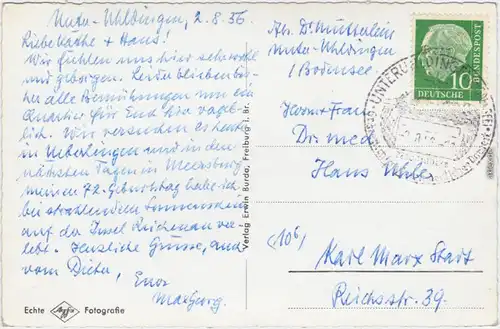 Unter-Uhldingen, 2.8.56
Liebe Käthe + Hans!
Wir fühlen uns hier sehr wohl
und geborgen. Leider blieben bis-
her alle Bemühungen um ein
Quartier für Euch hier vergeb-
lich. Wir versuchen es heute
in Ueberlingen und in den
nächsten Tagen in Meersburg
meinen 72. Geburtstag habe ich
bei strahlendem Sonnenschein
auf der Insel Reichenau ver-
lebt. Herzliche Grüsse, auch
vom Dieter, Euer
Max Georg.
Echte Agfa Fotografie
Verlag Erwin Burda, Freiburg i. Br.
Abs. Dr. Mütterlein
Unter-Uhldingen
/Bodensee
DEUTSCHE BUNDESPOST
10
UNTERUHLDINGEN
Herrn + Frau
Dr. med.
Hans
(10b)
Karl Marx Stadt
Reichsstr. 39.